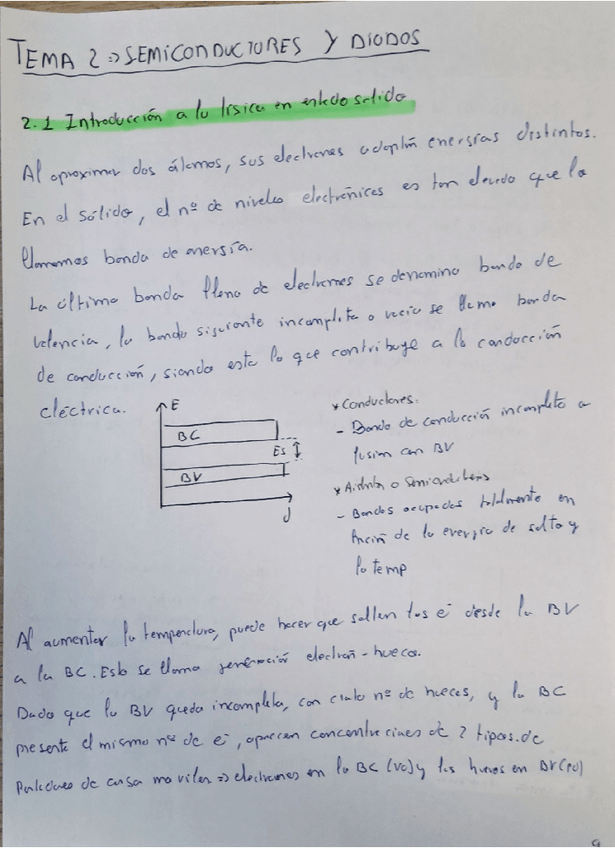 TEMA 2 => SEMICONDUCTORES Y DIODOS
2.1 Introducción a la física en estado solido
Al aproximar dos átomos, sus electrones adoptan energías distintos.
En el sólido, el nº de niveles electrónicos es tan elevado que lo
llamamos banda de energía.
La última banda llena de electrones se denomina banda de
valencia, la banda siguiente incompleta o vacia se llama banda
de conducción, siendo esta la que contribuye a la conducción
eléctrica.
E
BC
Es
BV
d
* Conductores:
- Banda de conducción incompleta o
fusion con BV
* Aislantes o Semiconductores
- Bandas ocupadas totalmente en
función de la energía de salto y
la temp
Al aumentar la temperatura, puede hacer que salten los e⁻ desde la BV
a la BC. Esto se llama generación electrón-hueco.
Dado que la BV queda incompleta, con cierto nº de huecos, y la BC
presente el mismo nº de e⁻, aparecen concentraciones de 2 tipos de
portadores de carga moviles => electrones en la BC y los huecos en BV